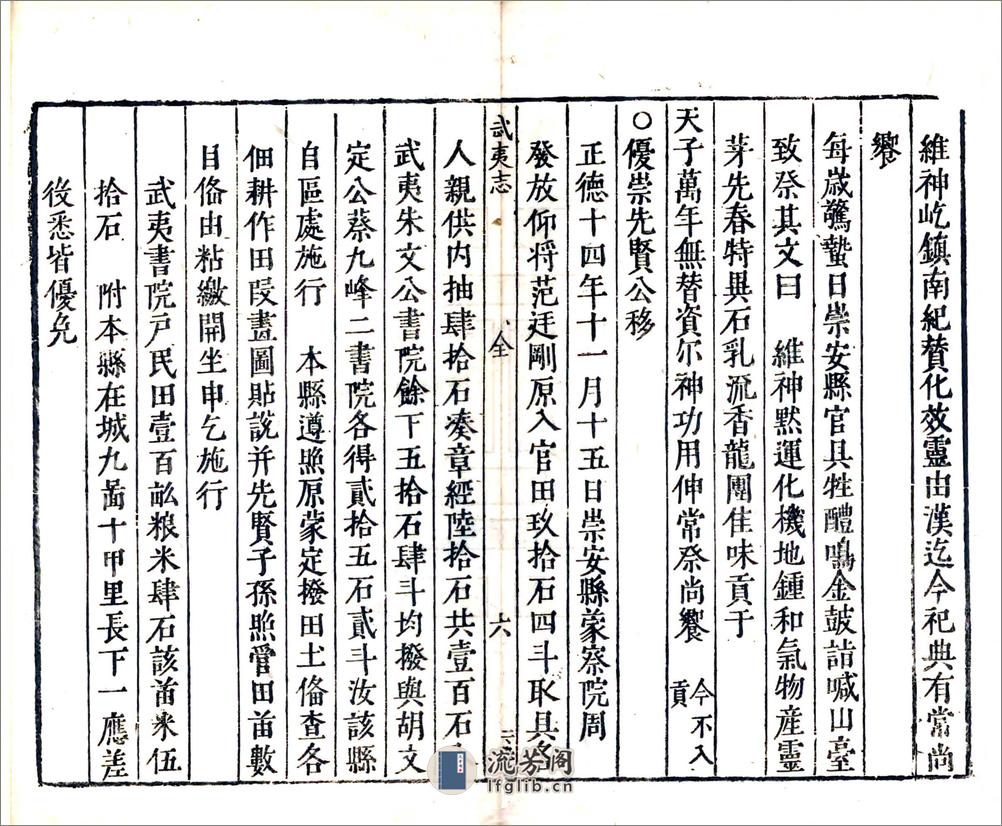 維神屹鎮南紀賛化效靈由漢迄今祀典有常尚
饗
每歲驚蟄日崇安縣官具牲醴鳴金鼓詣喊山臺
致祭其文曰　維神黙運化機地鍾和氣物産靈
芽先春特異石乳流香龍團佳味貢于
天子萬年無替資尔神功用伸常祭尚饗 今不入貢
○優崇先賢公移
正德十四年十一月十五日崇安縣蒙察院周
發放仰将范廷剛原入官田玖拾石四斗取具各
武夷志 全 六
人親供内抽肆拾石凑章經陸拾石共壹百石
武夷朱文公書院餘下五拾石肆斗均撥與胡文
定公蔡九峰二書院各得貳拾五石貳斗汝該縣
自區處施行　本縣遵照原蒙定撥田土俻查各
佃耕作田段畫圖貼說并先賢子孫照管田苗數
目俻由粘繳開坐申乞施行
武夷書院户民田壹百畆粮米肆石該苗米伍
拾石　附本縣在城九啚十甲里長下一應差
後悉皆優免
流芳阁
lfglib.cn